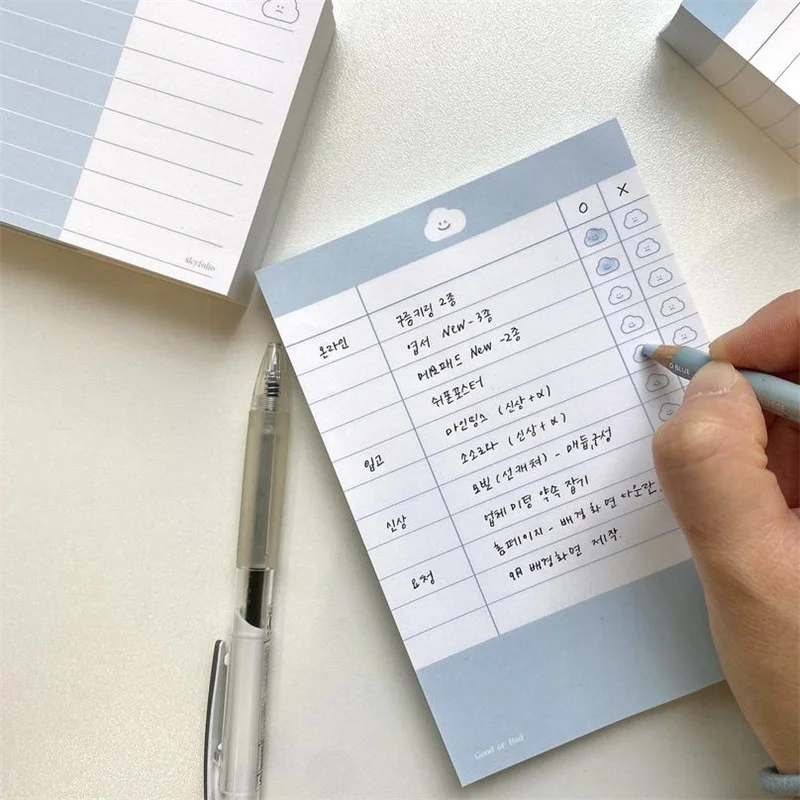 skyfolio
O X
구름키링 2종
온라인 엽서 New - 3종
메모패드 New - 2종
쉬폴포스터
마인띵스 (신상 + α)
입고 소소로와 (신상 + α)
모빌 (선캐쳐) - 매듭, 구성
신상 업체 미팅 약속 잡기
홈페이지 - 배경화면 다운란.
요청 9月 배경화면 제작.
Good or Bad
O BLUE